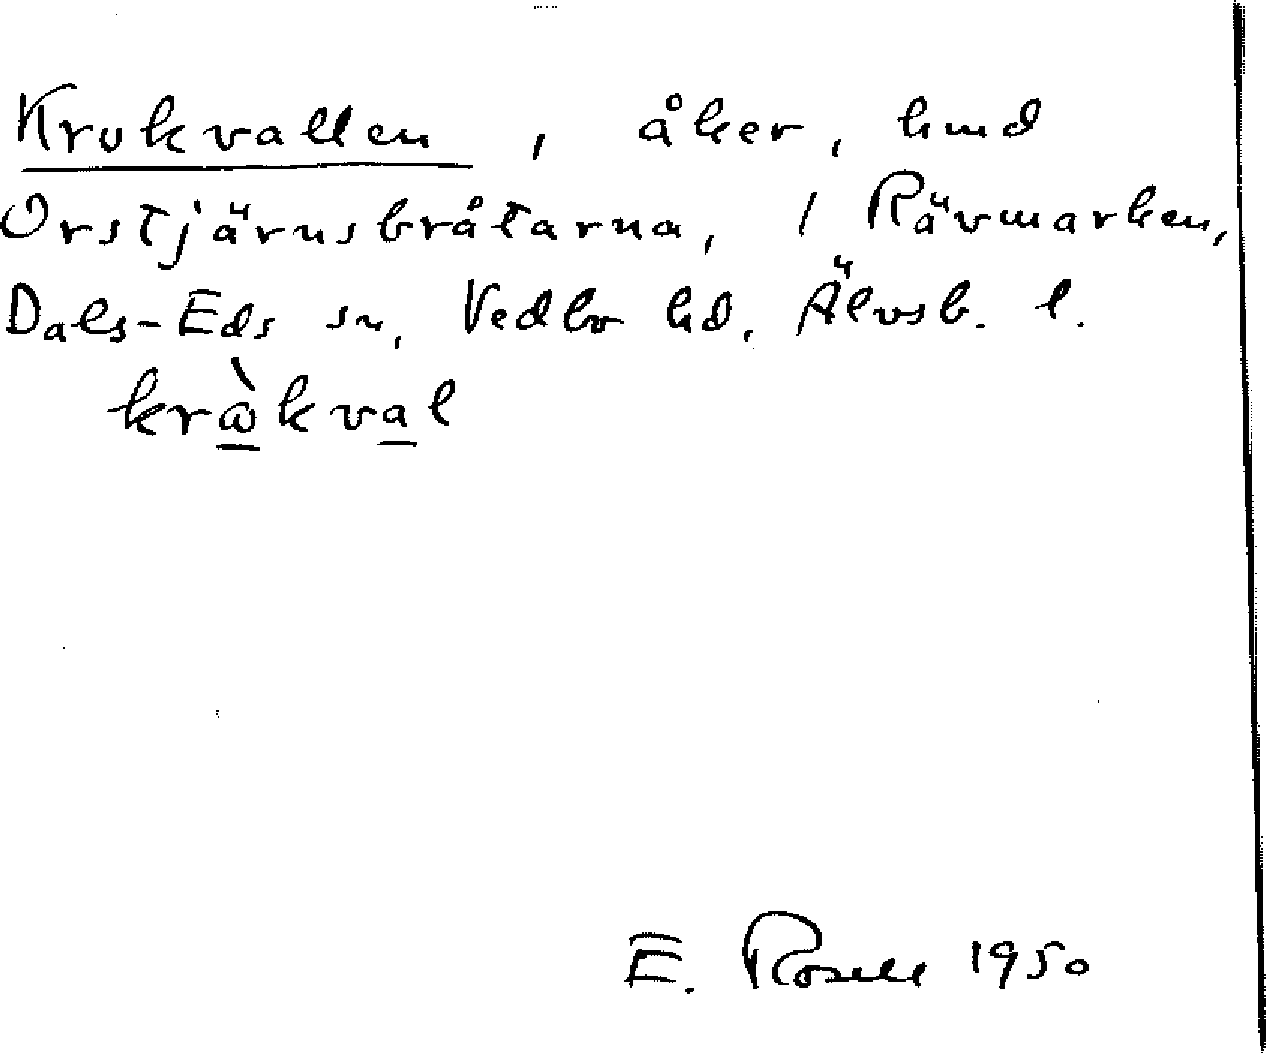 Krokvallen, åker, hmd
Orstjärnsbråtarna, / Rävmarken,
Dals-Eds sn, Vedbo hd, Älvsb. l.
krὼkval
E. Rosell 1950